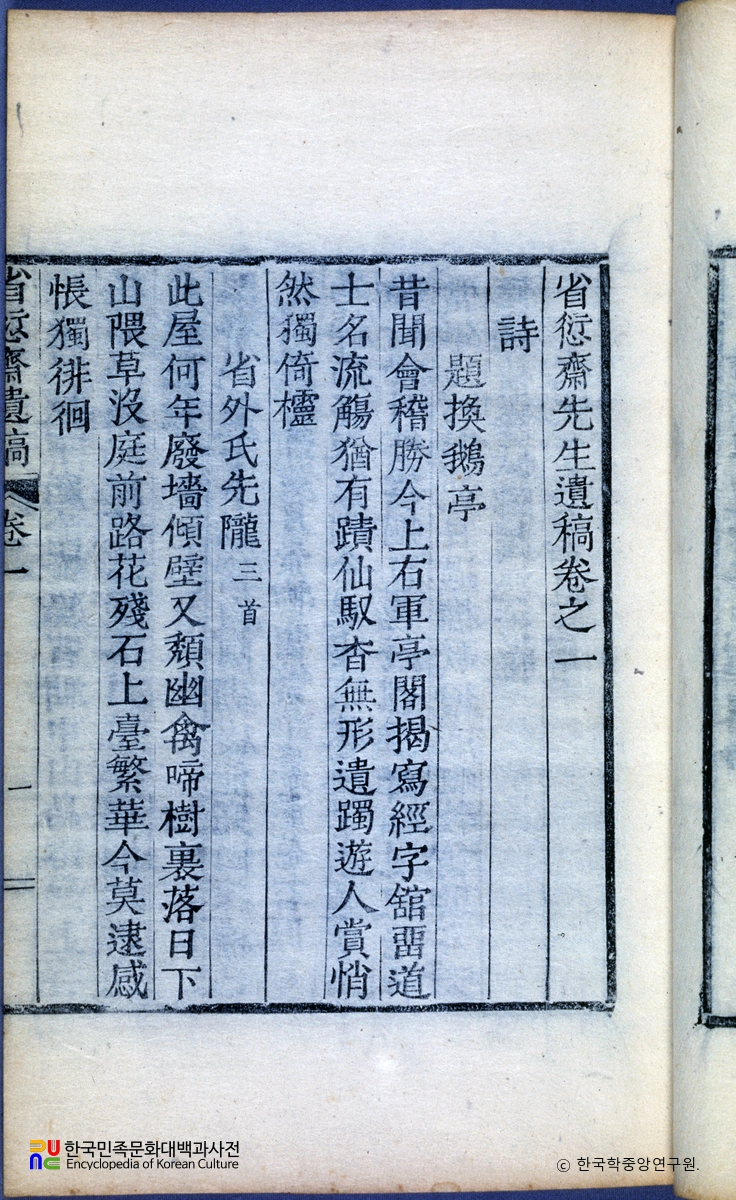 省愆齋先生遺稿卷之一
詩
題換鵝亭
昔聞會稽勝今上右軍亭閣揭寫經字舘畱道
士名流觴猶有蹟仙馭杳無形遺躅遊人賞悄
然獨倚欞
省外氏先隴三首
此屋何年廢墻傾壁又頹幽禽啼樹裏落日下
山隈草沒庭前路花殘石上臺繁華今莫逮感
悵獨徘徊
省愆齋遺稿 卷一 一
한국민족문화대백과사전
Encyclopedia of Korean Culture
© 한국학중앙연구원.